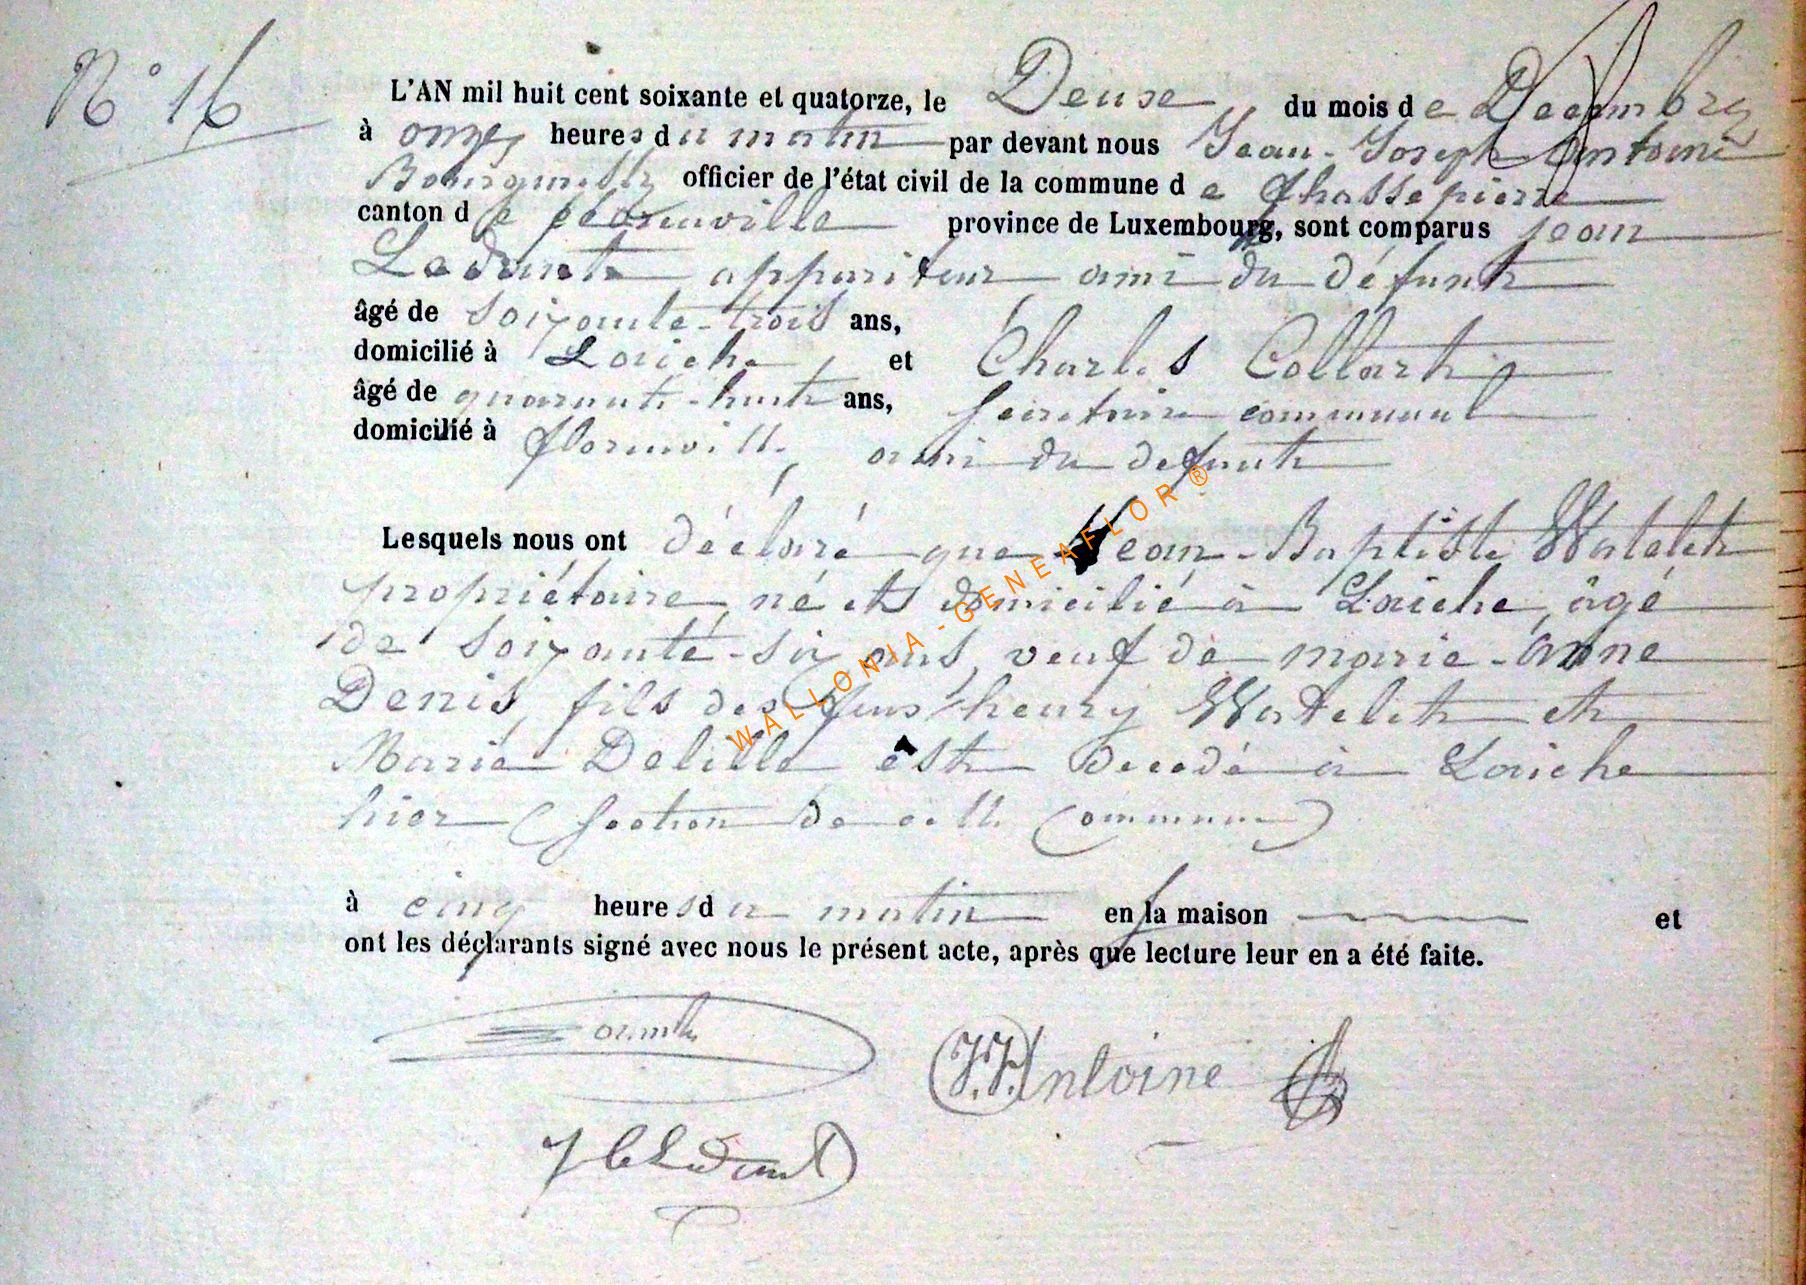 N° 16
L'AN mil huit cent soixante et quatorze, le Deuse du mois de Decembre
à onze heures du matin par devant nous Jean-Joseph Antoine
Bourgmestre officier de l'état civil de la commune de Chassepierre
canton de florenville province de Luxembourg, sont comparus jean
Ledant appariteur ami du défunt
âgé de soixante-trois ans,
domicilié à Laiche, et Charles Collart,
âgé de quarante-huit ans, secretaire communal
domicilié à florenville, ami du defunt
Lesquels nous ont déclaré que Jean-Baptiste Watelet
propriétaire, né et domicilié à Laiche, âgé
de soixante-six ans, veuf de marie-anne
Denis, fils des feus henry Watelet et
Marie Delille est decedé à Laiche
hier (section de cette commune)
à cinq heures du matin en la maison et
ont les déclarants signé avec nous le présent acte, après que lecture leur en a été faite.
J.J. Antoine
WALLONIA-GENEAFLOR®